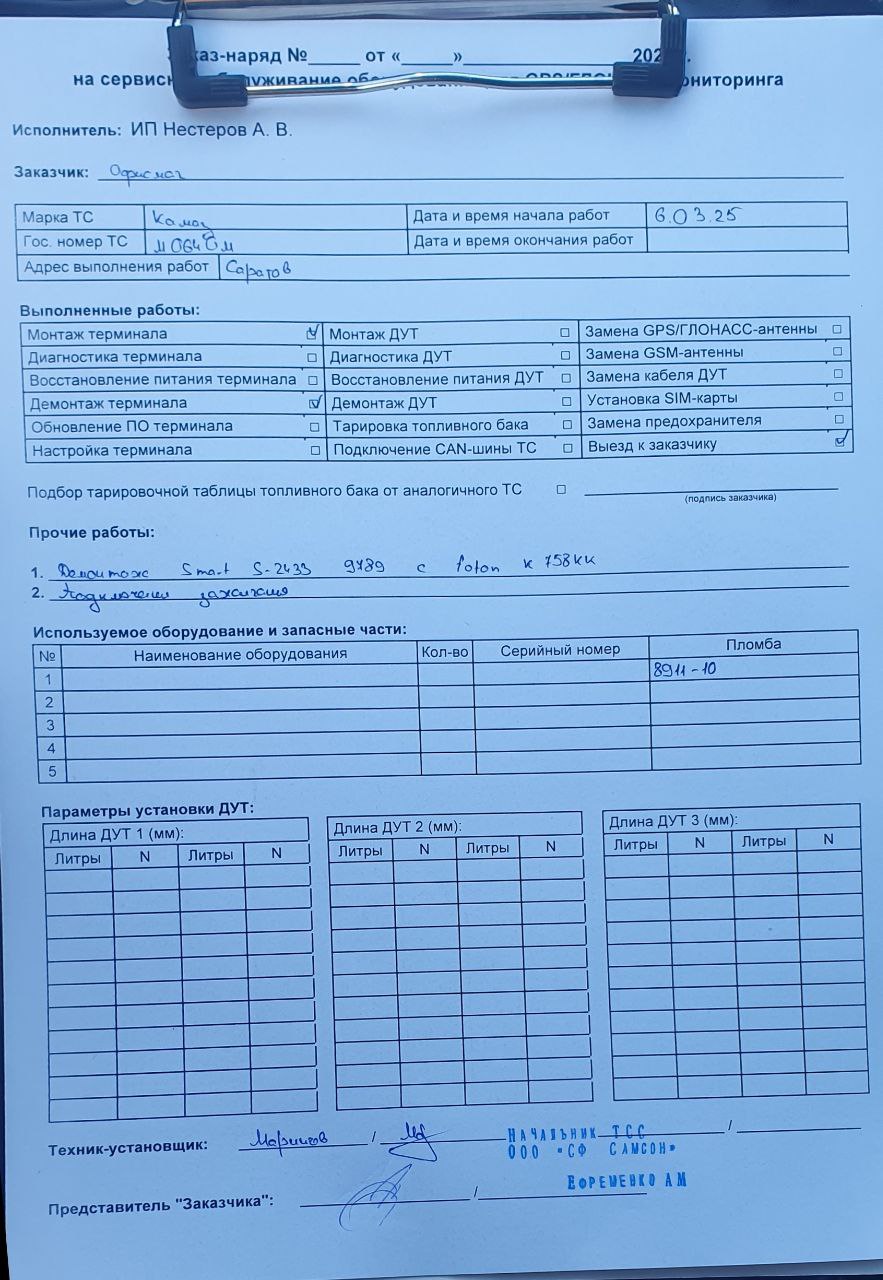 аз-наряд №_____ от «_____»_________________ 202 г.
на сервисн служивание обо ониторинга
Исполнитель: ИП Нестеров А. В.
Заказчик: Офисмаг
Марка ТС Камаз Дата и время начала работ 6.03.25
Гос. номер ТС Дата и время окончания работ
Адрес выполнения работ Саратов
Выполненные работы:
Монтаж терминала ☑ Монтаж ДУТ □ Замена GPS/ГЛОНАСС-антенны □
Диагностика терминала □ Диагностика ДУТ □ Замена GSM-антенны □
Восстановление питания терминала □ Восстановление питания ДУТ □ Замена кабеля ДУТ □
Демонтаж терминала ☑ Демонтаж ДУТ □ Установка SIM-карты □
Обновление ПО терминала □ Тарировка топливного бака □ Замена предохранителя □
Настройка терминала □ Подключение CAN-шины ТС □ Выезд к заказчику ☑
Подбор тарировочной таблицы топливного бака от аналогичного ТС □
(подпись заказчика)
Прочие работы:
1. Демонтаж Smart S-2433 9789 с Foton к 758кк
2. Подключении зажигания
Используемое оборудование и запасные части:
№ Наименование оборудования Кол-во Серийный номер Пломба
1 8911-10
2
3
4
5
Параметры установки ДУТ:
Длина ДУТ 1 (мм): Длина ДУТ 2 (мм): Длина ДУТ 3 (мм):
Литры N Литры N Литры N Литры N Литры N Литры N
Техник-установщик: / /
НАЧАЛЬНИК ТСС
ООО "СФ САМСОН"
ЕФРЕМЕНКО АМ
Представитель "Заказчика": /